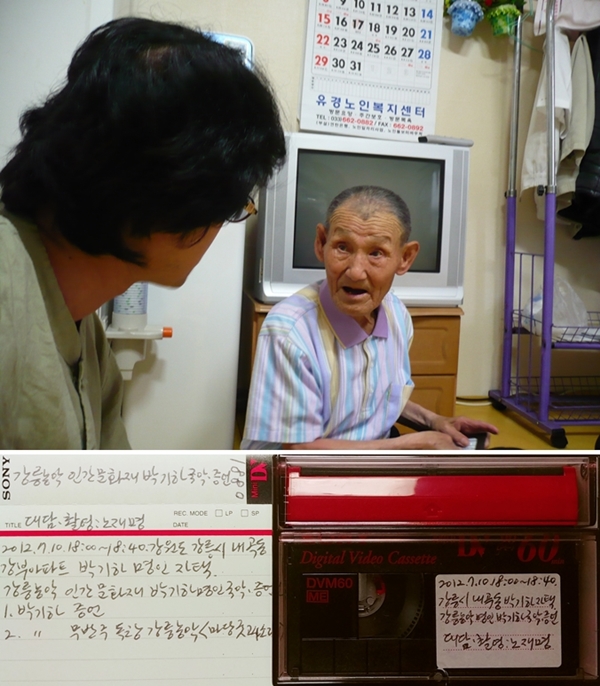 14
15 16 17 18 19 20 21
22 23 24 25 26 27 28
29 30 31
유경노인복지센터
방문요양·주간보호·방문목욕
TEL: 033)662-0882 / FAX: 662-0892
SONY
강릉농악 인간문화재 박기하 국악·증언
Mini DV
REC. MODE LP SP
TITLE 대담·촬영:노재명 DATE
2012.7.10.18:00~18:40.강원도 강릉시 내곡동
강부아파트 박기하 명인 자택.
강릉농악 인간문화재 박기하명인 국악·증언
1. 박기하 증언
2. 〃 무반주 독창 강릉농악<마당
Digital Video Cassette
DV 60
DVM60
ME
2012.7.10 18:00~18:40.
강릉시 내곡동 박기하 자택
강릉농악 명인 박기하 국악·증언
대담·촬영:노재명